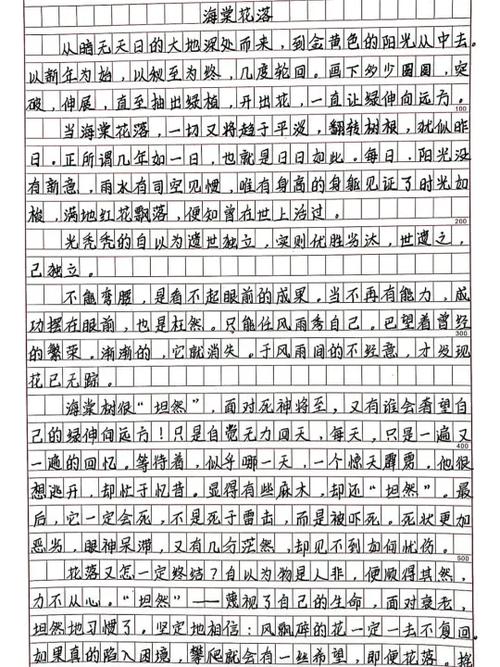 海棠花落
从暗无天日的大地深处而来，到金黄色的阳光从中去。
以新年为始，以秋至为终，几度轮回。画下多少圈圈，突
破，伸展，直至抽出绿植，开出花，一直让绿伸向远方。
100
当海棠花落，一切又将趋于平淡，翻转树根，犹似昨
日。正所谓几年如一日，也就是日日如此。每日，阳光没
有新意，雨水有司空见惯，唯有身高的身能见证了时光如
梭，满地红花飘落，便知曾在世上活过。
200
光秃秃的自以为遗世独立，实则优胜劣汰，世遗之，
己独立。
不能弯腰，是看不起眼前的成果。当不再有能力，成
功摆在眼前，也是枉然。只能任风雨秀自己。巴望着曾经
300
的繁荣。渐渐的，它就消失。于风雨间的不经意，才发现
花已无踪。
海棠树很“坦然”，面对死神将至，又有谁会奢望自
己的绿伸向远方！只是自觉无力回天，每天，只是一遍又
400
一遍的回忆。等待着，似乎哪一天，一个惊天霹雳。他很
想逃开，却忙于忆昔。显得有些麻木，却还“坦然”。最
后，它一定会死，不是死于雷击，而是被吓死。死状更加
恶劣，眼神呆滞，又有几分茫然，却见不到如何忧伤。
500
花落又怎一定终结？自以为物是人非，便顺得其然，
力不从心。“坦然”——蔑视了自己的生命，面对衰老，
坦然地习惯了。坚定地相信：风飘碎的花一定一去不复回。
如果真的陷入困境，攀爬就会有一丝希望，即便花落。